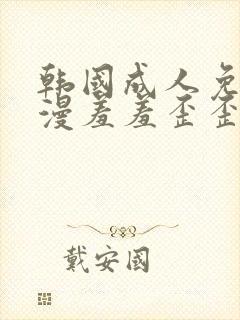 韩国成人免
漫羞羞歪歪
戴安国